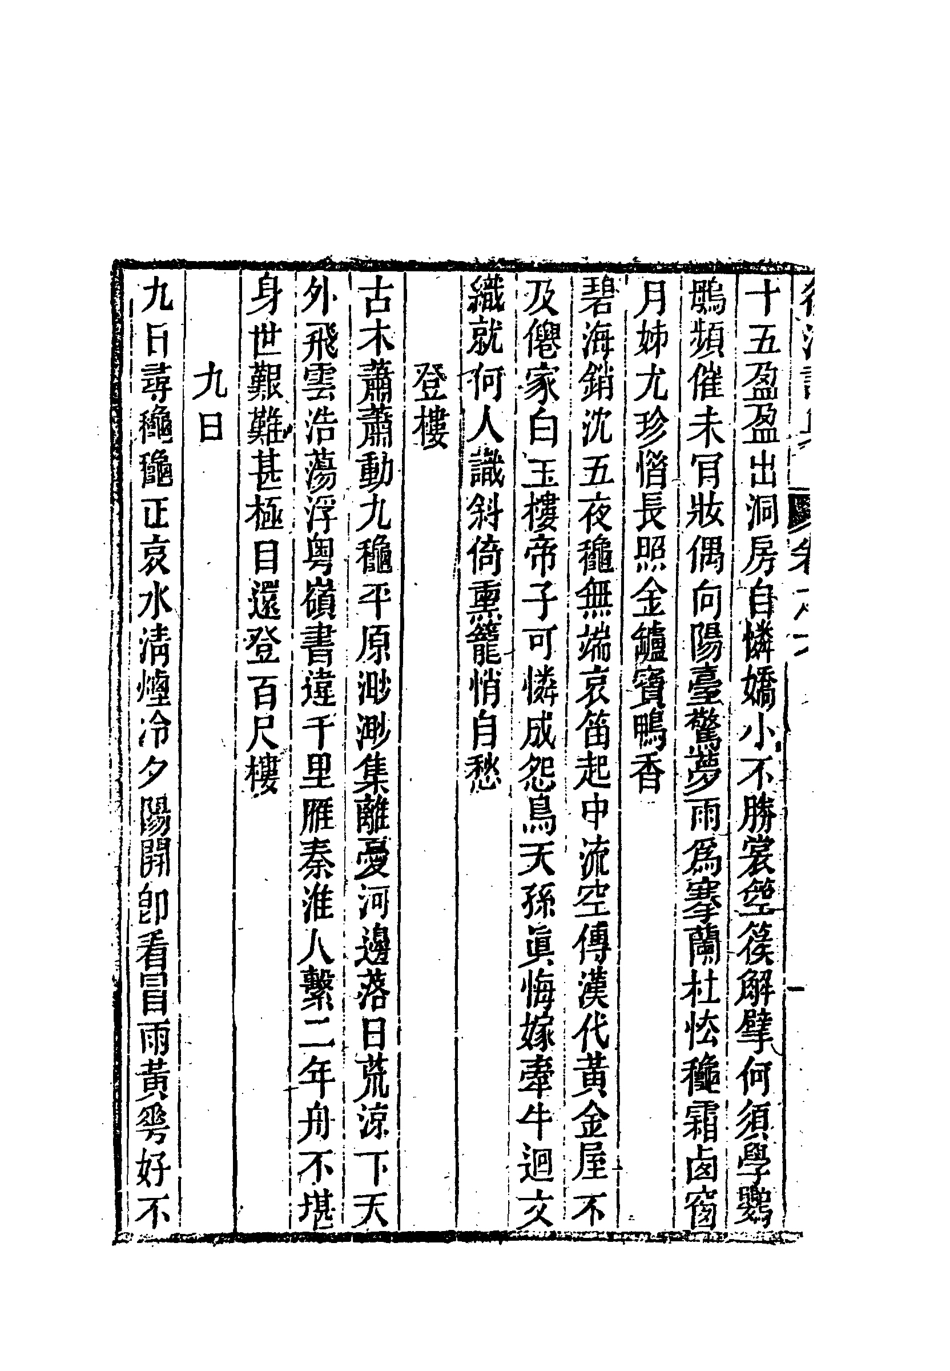 十五盈盈出洞房自憐嬌小不勝裳箜篌解擘何須學鸚
鵡頻催未肎妝偶向陽臺驚夢雨爲搴蘭杜怯龝霜卤窗
月姊尤珍惜長照金鑪寶鴨香
碧海銷沈五夜龝無端哀笛起中流空傳漢代黃金屋不
及僊家白玉樓帝子可憐成怨鳥天孫眞悔嫁牽牛迴文
織就何人識斜倚熏籠悄自愁
登樓
古木蕭蕭動九龝平原渺渺集離憂河邊落日荒涼下天
外飛雲浩蕩浮粤嶺書違千里雁秦淮人繫二年舟不堪
身世艱難甚極目還登百尺樓
九日
九日尋龝龝正哀水淸煙冷夕陽開卽看冒雨黃蕚好不